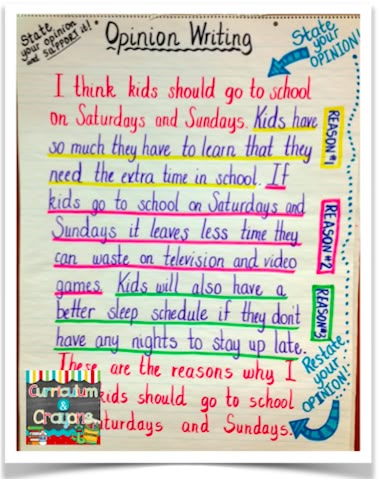 State your opinion and SUPPORT it!
Opinion Writing
State your OPINION!
I think kids should go to school
on Saturdays and Sundays. Kids have
so much they have to learn that they
need the extra time in school. If
kids go to school on Saturdays and
Sundays it leaves less time they
can waste on television and video
games. Kids will also have a
better sleep schedule if they don't
have any nights to stay up late.
These are the reasons why I
kids should go to school
Saturdays and Sundays.
REASON #1
REASON #2
REASON #3
Restate your OPINION!
Curriculum
&
Crayons